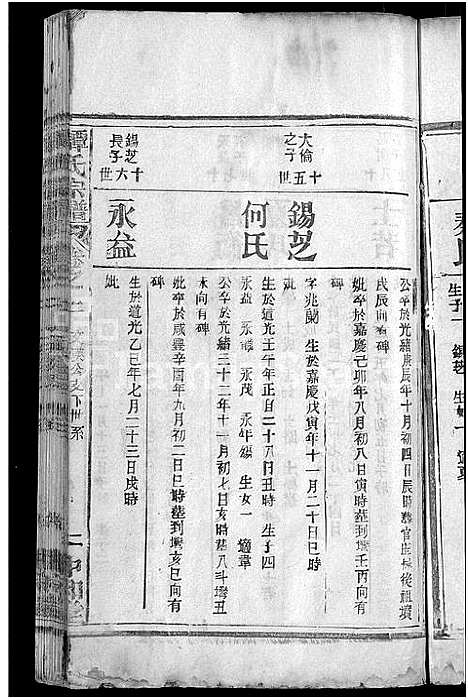 生子一 錫芝 生女一 適夏
公卒於光緒庚辰年十月初四日辰時葬官莊城後祖墳
戌辰向有碑
妣卒於嘉慶己卯年八月初八日寅時葬到壪壬丙向有
碑
大倫之子
十五世
錫芝
字兆蘭 生於嘉慶戊寅年十一月二十日巳時
妣
何氏
生於道光壬午年正月二十八日丑時 生子四
永益 永茂 永年 生女一 適章
公卒於光緒三十二年十一月初七日亥時葬八斗壪丑
未向有碑
妣卒於咸豐辛酉年九月初二日巳時葬到壪亥巳向有
錫芝長子
十六世
永益
生於道光乙巳年七月二十三日戌時
妣
譚氏宗譜